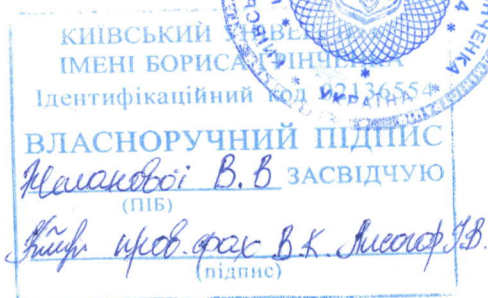 КИЇВСЬКИЙ УНІВЕРСИТЕТ
ІМЕНІ БОРИСА ГРІНЧЕНКА
Ідентифікаційний код 02136554
УКРАЇНА
ВЛАСНОРУЧНИЙ ПІДПИС
В.В ЗАСВІДЧУЮ
(ПІБ)
пров. фах В.К. Лисогор
(підпис)